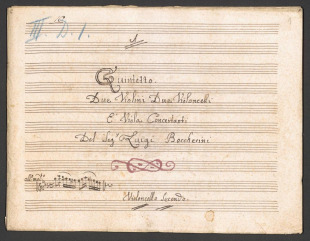 III. D. 1.
Quintetto.
Due Violini Due Violoncelli
E Viola Concertanti
Del Sigr. Luigi Boccherini
Violoncello Secondo.